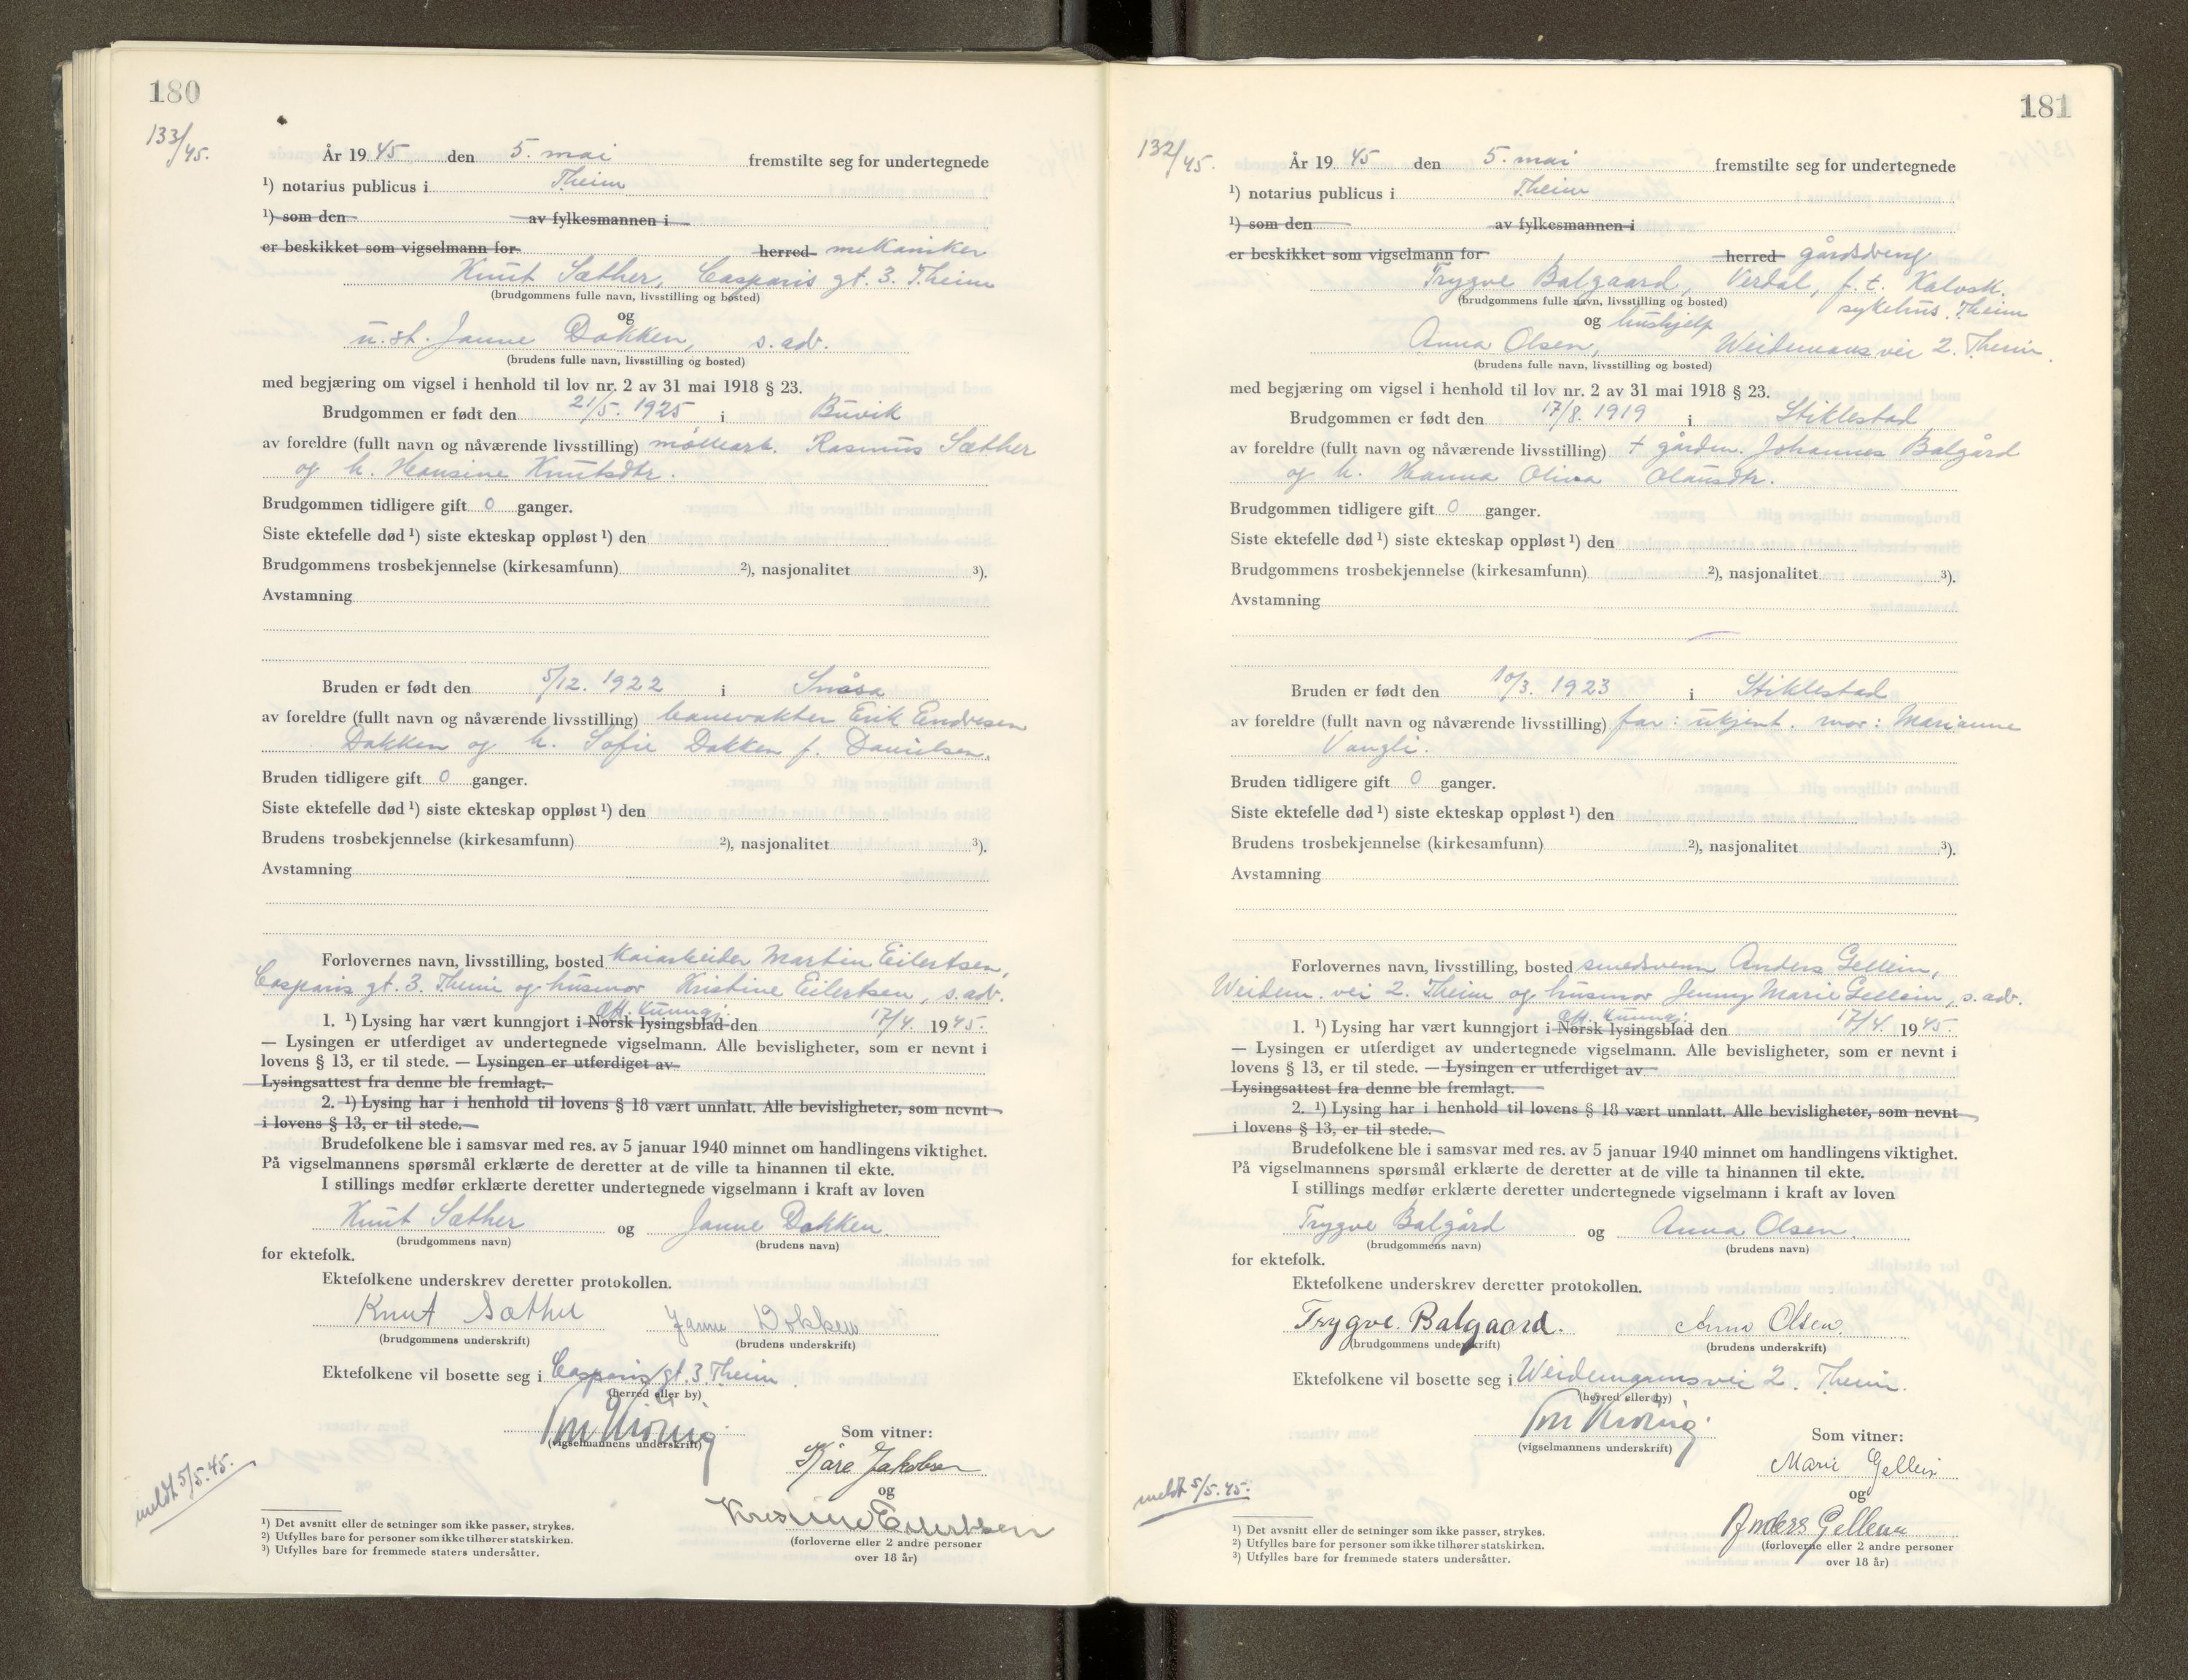 180
133/45.
År 1945 den 5. mai fremstilte seg for undertegnede
¹) notarius publicus i Theim
¹) som den av fylkesmannen i
er beskikket som vigselmann for herred mekaniker
Knut Sæther, Casparis gt. 3. Theim
(brudgommens fulle navn, livsstilling og bosted)
og
u.st. Janne Dokken, s. adr.
(brudens fulle navn, livsstilling og bosted)
med begjæring om vigsel i henhold til lov nr. 2 av 31 mai 1918 § 23.
Brudgommen er født den 21/5. 1925 i Buvik
av foreldre (fullt navn og nåværende livsstilling) møllearb. Rasmus Sæther
og h. Hansine Knutsdtr.
Brudgommen tidligere gift 0 ganger.
Siste ektefelle død ¹) siste ekteskap oppløst ¹) den
Brudgommens trosbekjennelse (kirkesamfunn) ²), nasjonalitet ³).
Avstamning
Bruden er født den 5/12. 1922 i Snåsa
av foreldre (fullt navn og nåværende livsstilling) banevokter Erik Endresen
Dokken og h. Sofie Dokken f. Danielsen.
Bruden tidligere gift 0 ganger.
Siste ektefelle død ¹) siste ekteskap oppløst ¹) den
Brudens trosbekjennelse (kirkesamfunn) ²), nasjonalitet ³).
Avstamning
Forlovernes navn, livsstilling, bosted kaiarbeider Martin Eilertsen,
Casparis gt. 3. Theim og husmor Kristine Eilertsen, s. adr.
Off. kunngj.
1. ¹) Lysing har vært kunngjort i Norsk lysingsblad den 17/4. 1945.
— Lysingen er utferdiget av undertegnede vigselmann. Alle bevisligheter, som er nevnt i
lovens § 13, er til stede. — Lysingen er utferdiget av
Lysingsattest fra denne ble fremlagt.
2. ¹) Lysing har i henhold til lovens § 18 vært unnlatt. Alle bevisligheter, som nevnt
i lovens § 13, er til stede.
Brudefolkene ble i samsvar med res. av 5 januar 1940 minnet om handlingens viktighet.
På vigselmannens spørsmål erklærte de deretter at de ville ta hinannen til ekte.
I stillings medfør erklærte deretter undertegnede vigselmann i kraft av loven
Knut Sæther og Janne Dokken.
(brudgommens navn) (brudens navn)
for ektefolk.
Ektefolkene underskrev deretter protokollen.
Knut Sæther Janne Dokken
(brudgommens underskrift) (brudens underskrift)
Ektefolkene vil bosette seg i Casparis gt. 3. Theim
(herred eller by)
(vigselmannens underskrift)
Som vitner:
Kåre Jakobsen
og
Kristine Eilertsen
(forloverne eller 2 andre personer
over 18 år)
meldt 5/5.45.
¹) Det avsnitt eller de setninger som ikke passer, strykes.
²) Utfylles bare for personer som ikke tilhører statskirken.
³) Utfylles bare for fremmede staters undersåtter.
181
132/45.
År 1945 den 5. mai fremstilte seg for undertegnede
¹) notarius publicus i Theim
¹) som den av fylkesmannen i
er beskikket som vigselmann for herred gårdsdreng
Trygve Balgaard, Verdal, f.t. Kalvsk.
(brudgommens fulle navn, livsstilling og bosted) sykehus. Theim
og hushjelp
Anna Olsen, Weidemans vei 2. Theim.
(brudens fulle navn, livsstilling og bosted)
med begjæring om vigsel i henhold til lov nr. 2 av 31 mai 1918 § 23.
Brudgommen er født den 17/8. 1919 i Stiklestad
av foreldre (fullt navn og nåværende livsstilling) + gårdm. Johannes Balgård
og h. Hanna Oliva Olausdtr.
Brudgommen tidligere gift 0 ganger.
Siste ektefelle død ¹) siste ekteskap oppløst ¹) den
Brudgommens trosbekjennelse (kirkesamfunn) ²), nasjonalitet ³).
Avstamning
Bruden er født den 10/3. 1923 i Stiklestad
av foreldre (fullt navn og nåværende livsstilling) far: ukjent. mor: Marianne
Vangli.
Bruden tidligere gift 0 ganger.
Siste ektefelle død ¹) siste ekteskap oppløst ¹) den
Brudens trosbekjennelse (kirkesamfunn) ²), nasjonalitet ³).
Avstamning
Forlovernes navn, livsstilling, bosted smedsvenn Anders Gellein,
Weidem. vei 2. Theim og husmor Jenny Marie Gellein, s. adr.
Off. kunngj.
1. ¹) Lysing har vært kunngjort i Norsk lysingsblad den 17/4. 1945.
— Lysingen er utferdiget av undertegnede vigselmann. Alle bevisligheter, som er nevnt i
lovens § 13, er til stede. — Lysingen er utferdiget av
Lysingsattest fra denne ble fremlagt.
2. ¹) Lysing har i henhold til lovens § 18 vært unnlatt. Alle bevisligheter, som nevnt
i lovens § 13, er til stede.
Brudefolkene ble i samsvar med res. av 5 januar 1940 minnet om handlingens viktighet.
På vigselmannens spørsmål erklærte de deretter at de ville ta hinannen til ekte.
I stillings medfør erklærte deretter undertegnede vigselmann i kraft av loven
Trygve Balgård og Anna Olsen.
(brudgommens navn) (brudens navn)
for ektefolk.
Ektefolkene underskrev deretter protokollen.
Trygve. Balgaard. Anna Olsen.
(brudgommens underskrift) (brudens underskrift)
Ektefolkene vil bosette seg i Weidemanns vei 2. Theim.
(herred eller by)
(vigselmannens underskrift)
Som vitner:
Marie Gellein
og
Anders Gellein
(forloverne eller 2 andre personer
over 18 år)
meldt 5/5.45.
¹) Det avsnitt eller de setninger som ikke passer, strykes.
²) Utfylles bare for personer som ikke tilhører statskirken.
³) Utfylles bare for fremmede staters undersåtter.